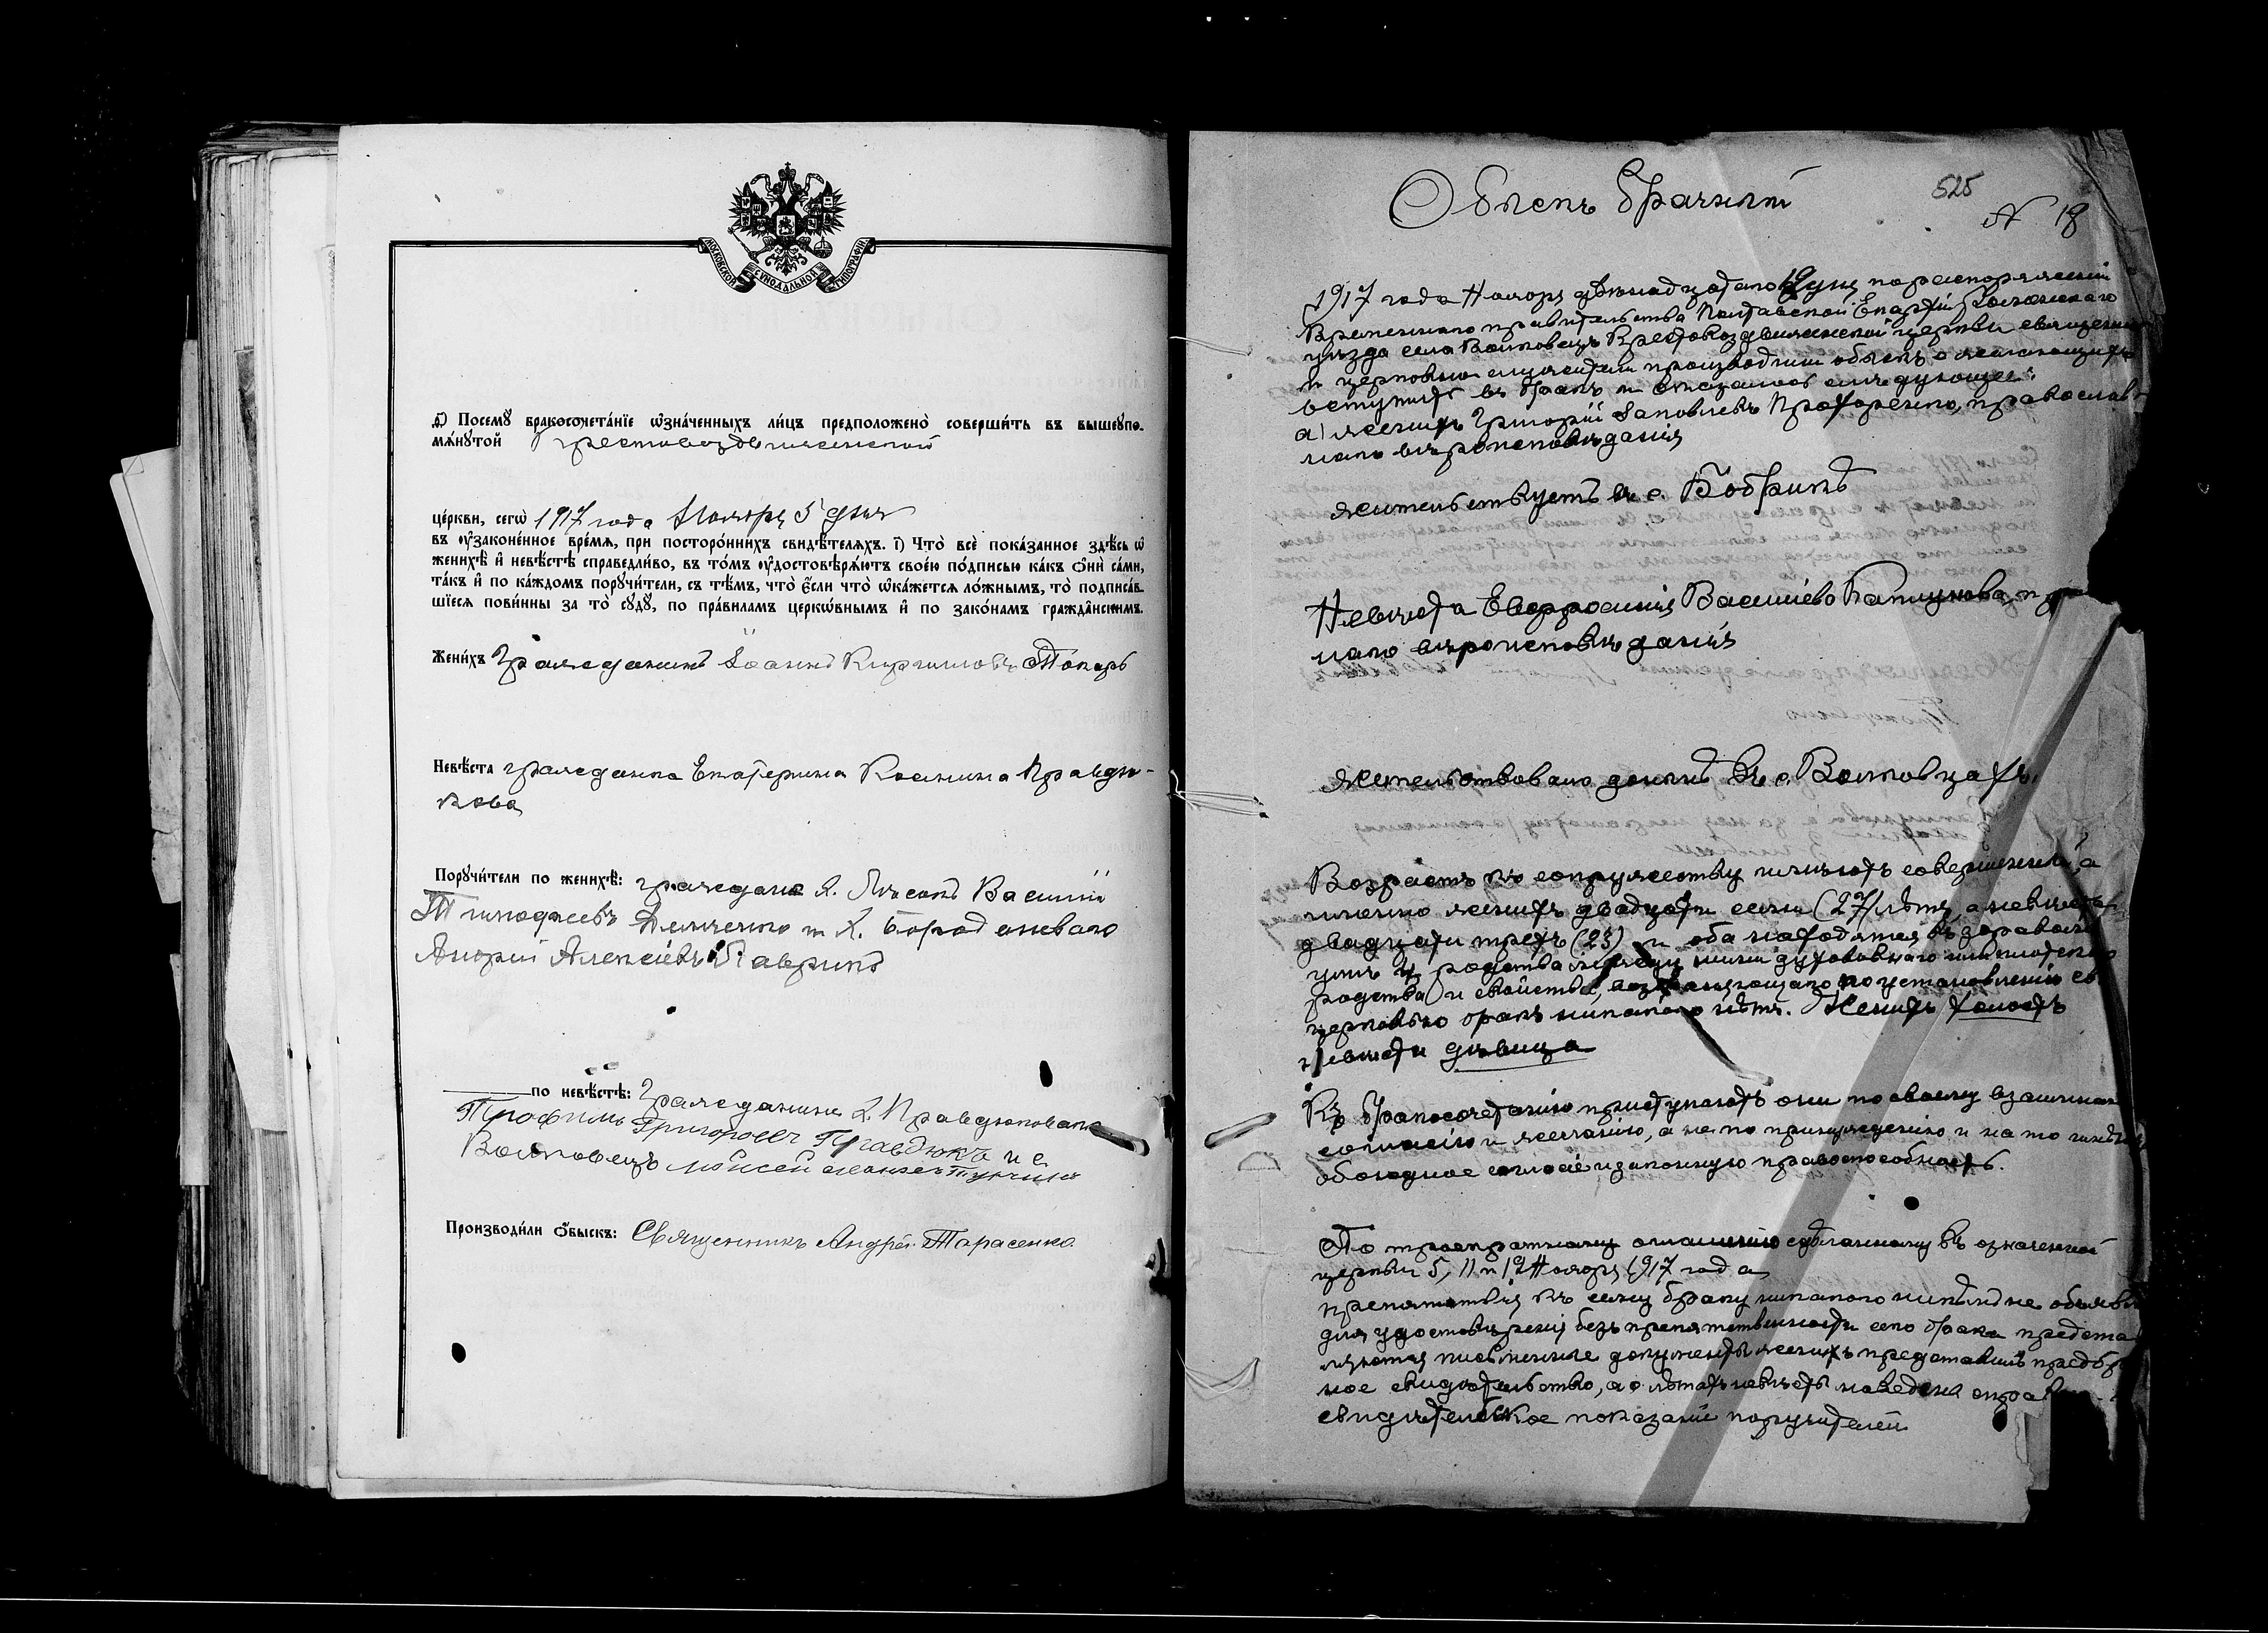 МОСКОВСКОЙ СѴНОДАЛЬНОЙ ТИПОГРАФІИ
Посемꙋ̀ бракосочета́нїе ѡ҆зна́ченныхъ ли́цъ предположено̀ соверши́ть въ вышеꙋпо-
мѧ́нꙋтой Крестовоздвиженской
це́ркви, сегѡ̀ 1917 года Ноября 5 дня
въ ᲂу҆зако́ненное вре́мѧ, при посторо́ннихъ свидѣ́телѧхъ. і҃) Что̀ всѐ пока́занное здѣ́сь ѡ҆
женихѣ̀ и҆ невѣ́стѣ справедли́во, въ то́мъ ᲂу҆достовѣрѧ́ютъ свое́ю по́дписью ка́къ ѻ҆нѝ са́ми,
та́къ и҆ по ка́ждомъ порꙋчи́тели, съ тѣ́мъ, что̀ є҆́сли что̀ ѡ҆ка́жетсѧ ло́жнымъ, то̀ подписа́в-
шїесѧ пови́нны за то̀ сꙋдꙋ̀, по пра́виламъ церкѡ́внымъ и҆ по зако́намъ гражда́нскимъ.
Жени́хъ Гражданинъ Іоаннъ Кирилловъ Токарь
Невѣ́ста гражданка Екатерина Космина Правдю-
кова
Порꙋчи́тели по женихѣ̀: граждане х. Лисокъ Василій
Тимофеевъ Демченко и х.
Андрій Алексіевъ Гаврикъ
по невѣ́стѣ: Гражданинъ х. Правдюковаго
Трофимъ Григорьевъ Правдюкъ и с.
Волковецъ Мойсей
Производи́ли ѻ҆́быскъ: Священникъ Андрей Тарасенко
Обыскъ брачный
525
N 18
1917 года Ноября двенадцатаго 12 дня по распоряженію
Временнаго правительства Полтавской Епархіи
уѣзда села Волковецъ Крестовоздвиженской церкви священникъ
и церковно служители производили обыскъ о желающихъ
вступить въ бракъ и оказалось слѣдующее:
а) женихъ Григорій Іаковлевъ Прохоренко, православ
наго вѣроисповѣданія
жительствуетъ въ с. Бобрикѣ
Невѣста Евфросинія Васильева
наго вѣроисповѣданія
жительствовало донынѣ въ с. Волковцахъ.
Возрастъ къ супружеству имѣютъ совершенный, а
именно женихъ двадцати семи (27) лѣтъ, а невѣста
двадцати трехъ (23) и оба находятся въ здравомъ
умѣ родства между ними духовнаго или плотского
родства и свойства, возбраняющаго по установленію св.
церковью бракъ никакого нѣтъ. Женихъ холостъ
невѣста дѣвица
Къ бракосочетанію приступаютъ они по своему взаимному
согласію и желанію, а не по принужденію и на то имѣютъ
обоюдное согласіе и законную правоспособность.
По троекратному оглашенію сдѣланному въ означенной
церкви 5, 11 и 12 Ноября 1917 года
препятствія къ сему браку никакого никѣмъ не объявле
для удостовѣренія безпрепятственности сего брака предста
вляются письменные документы женихъ представилъ предбр
ное свидѣтельство, а о лѣтахъ невѣсты наведена справ
свидѣтельское показаніе поручителей